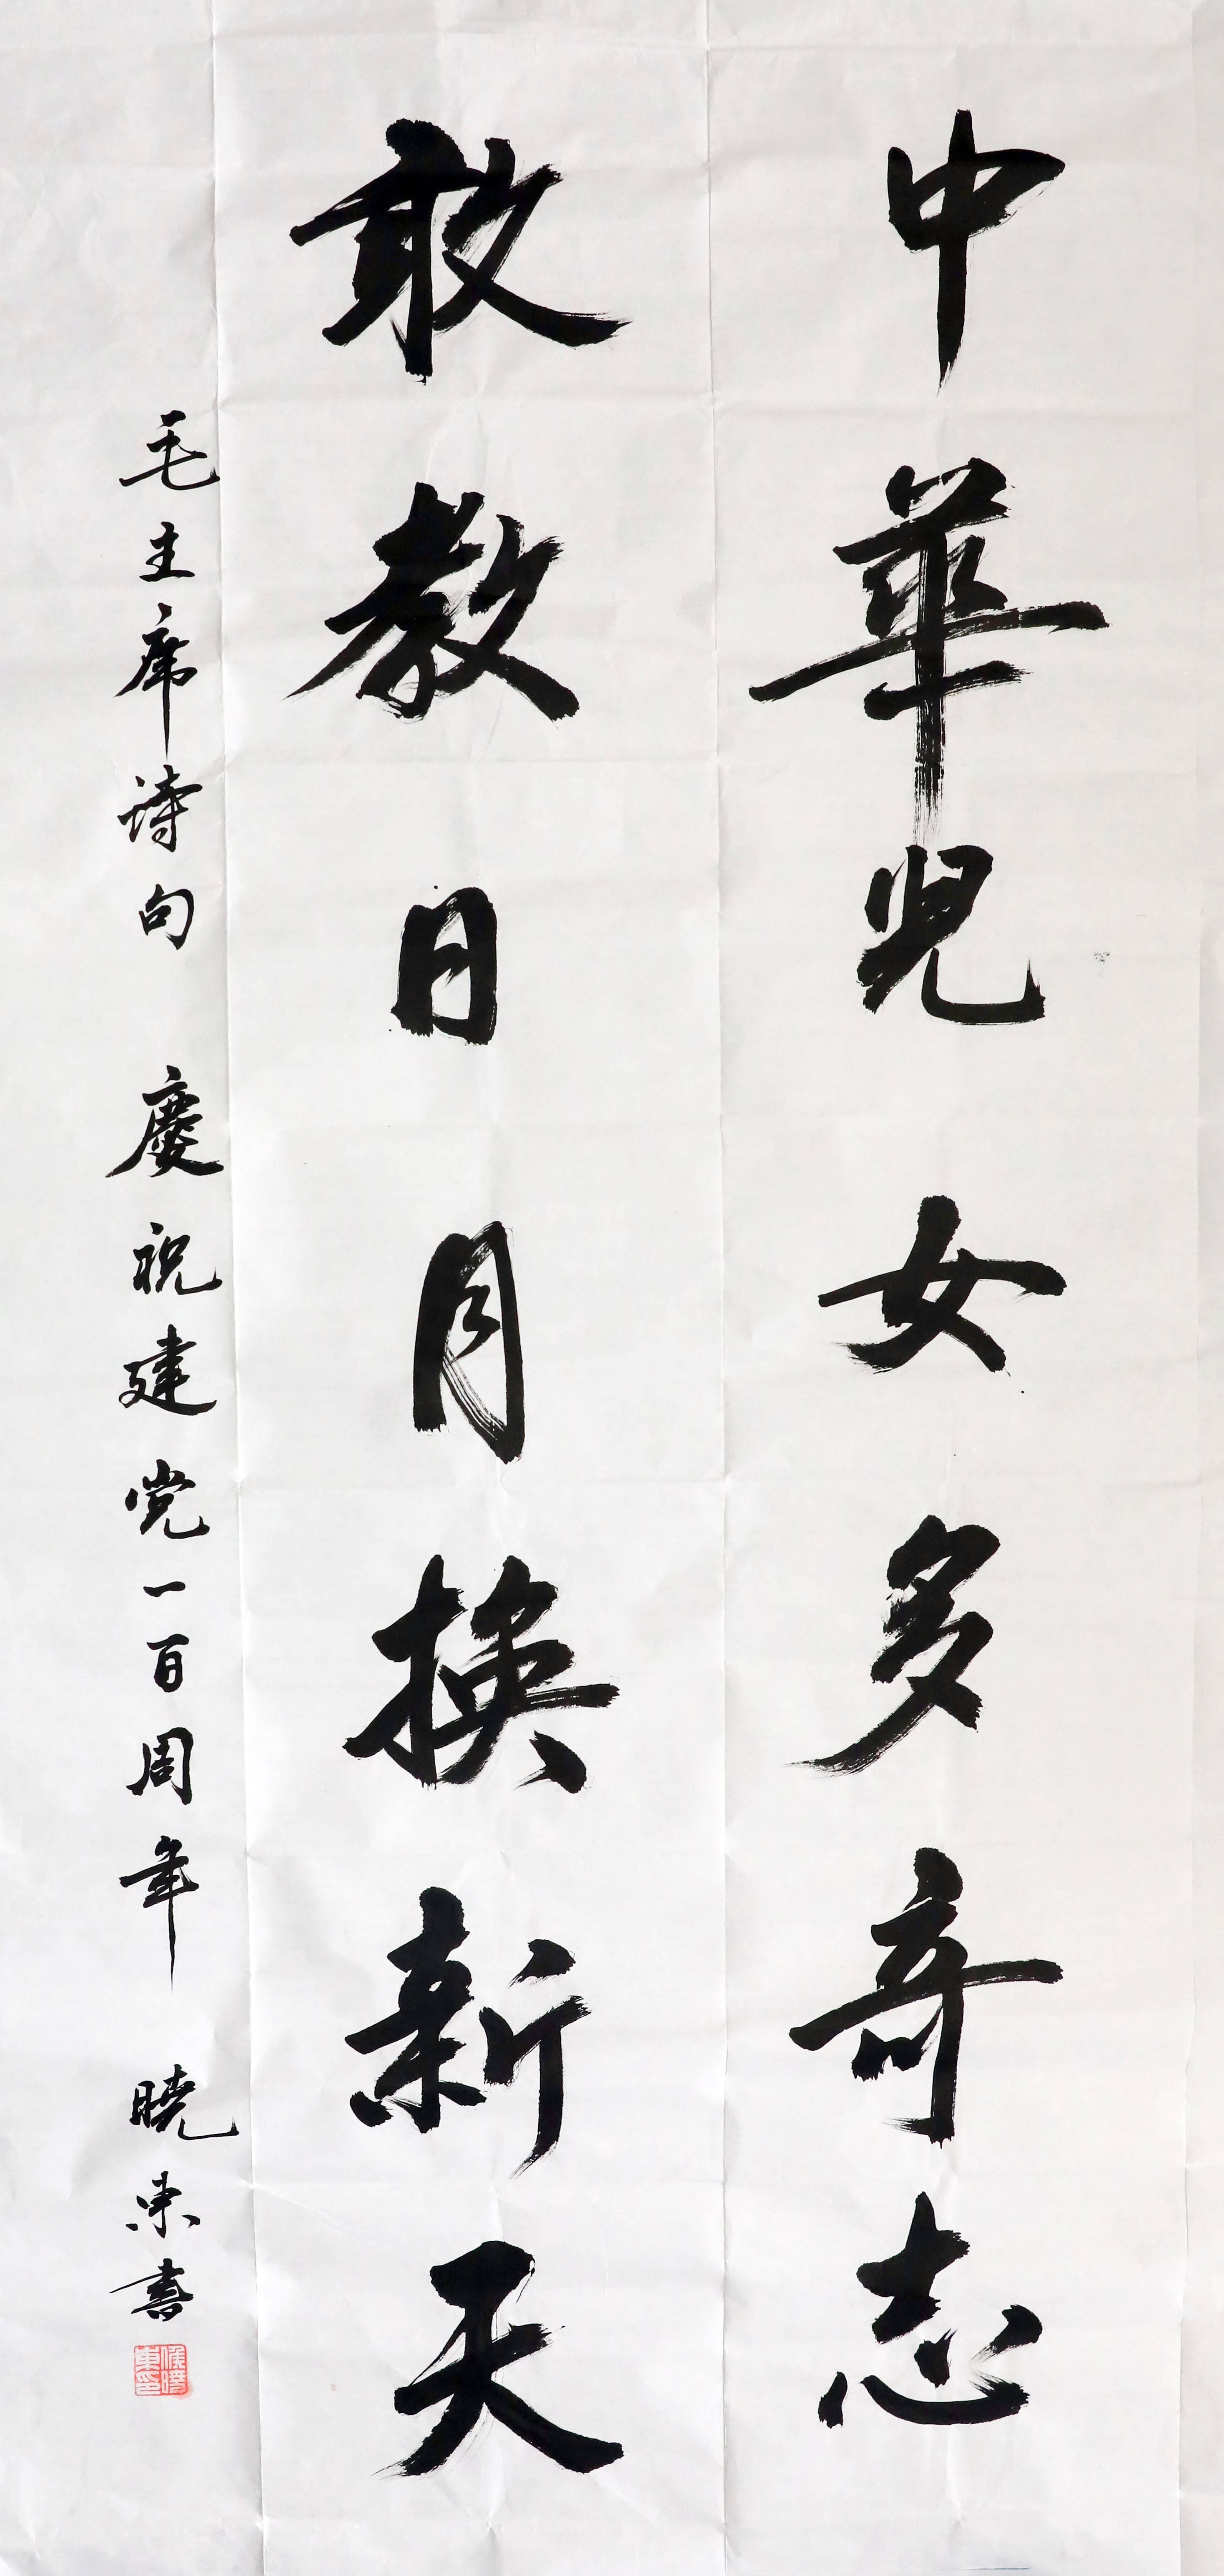 中華児女多奇志
敢教日月換新天
毛主席诗句 慶祝建党一百周年 曉東書
侯曉東印